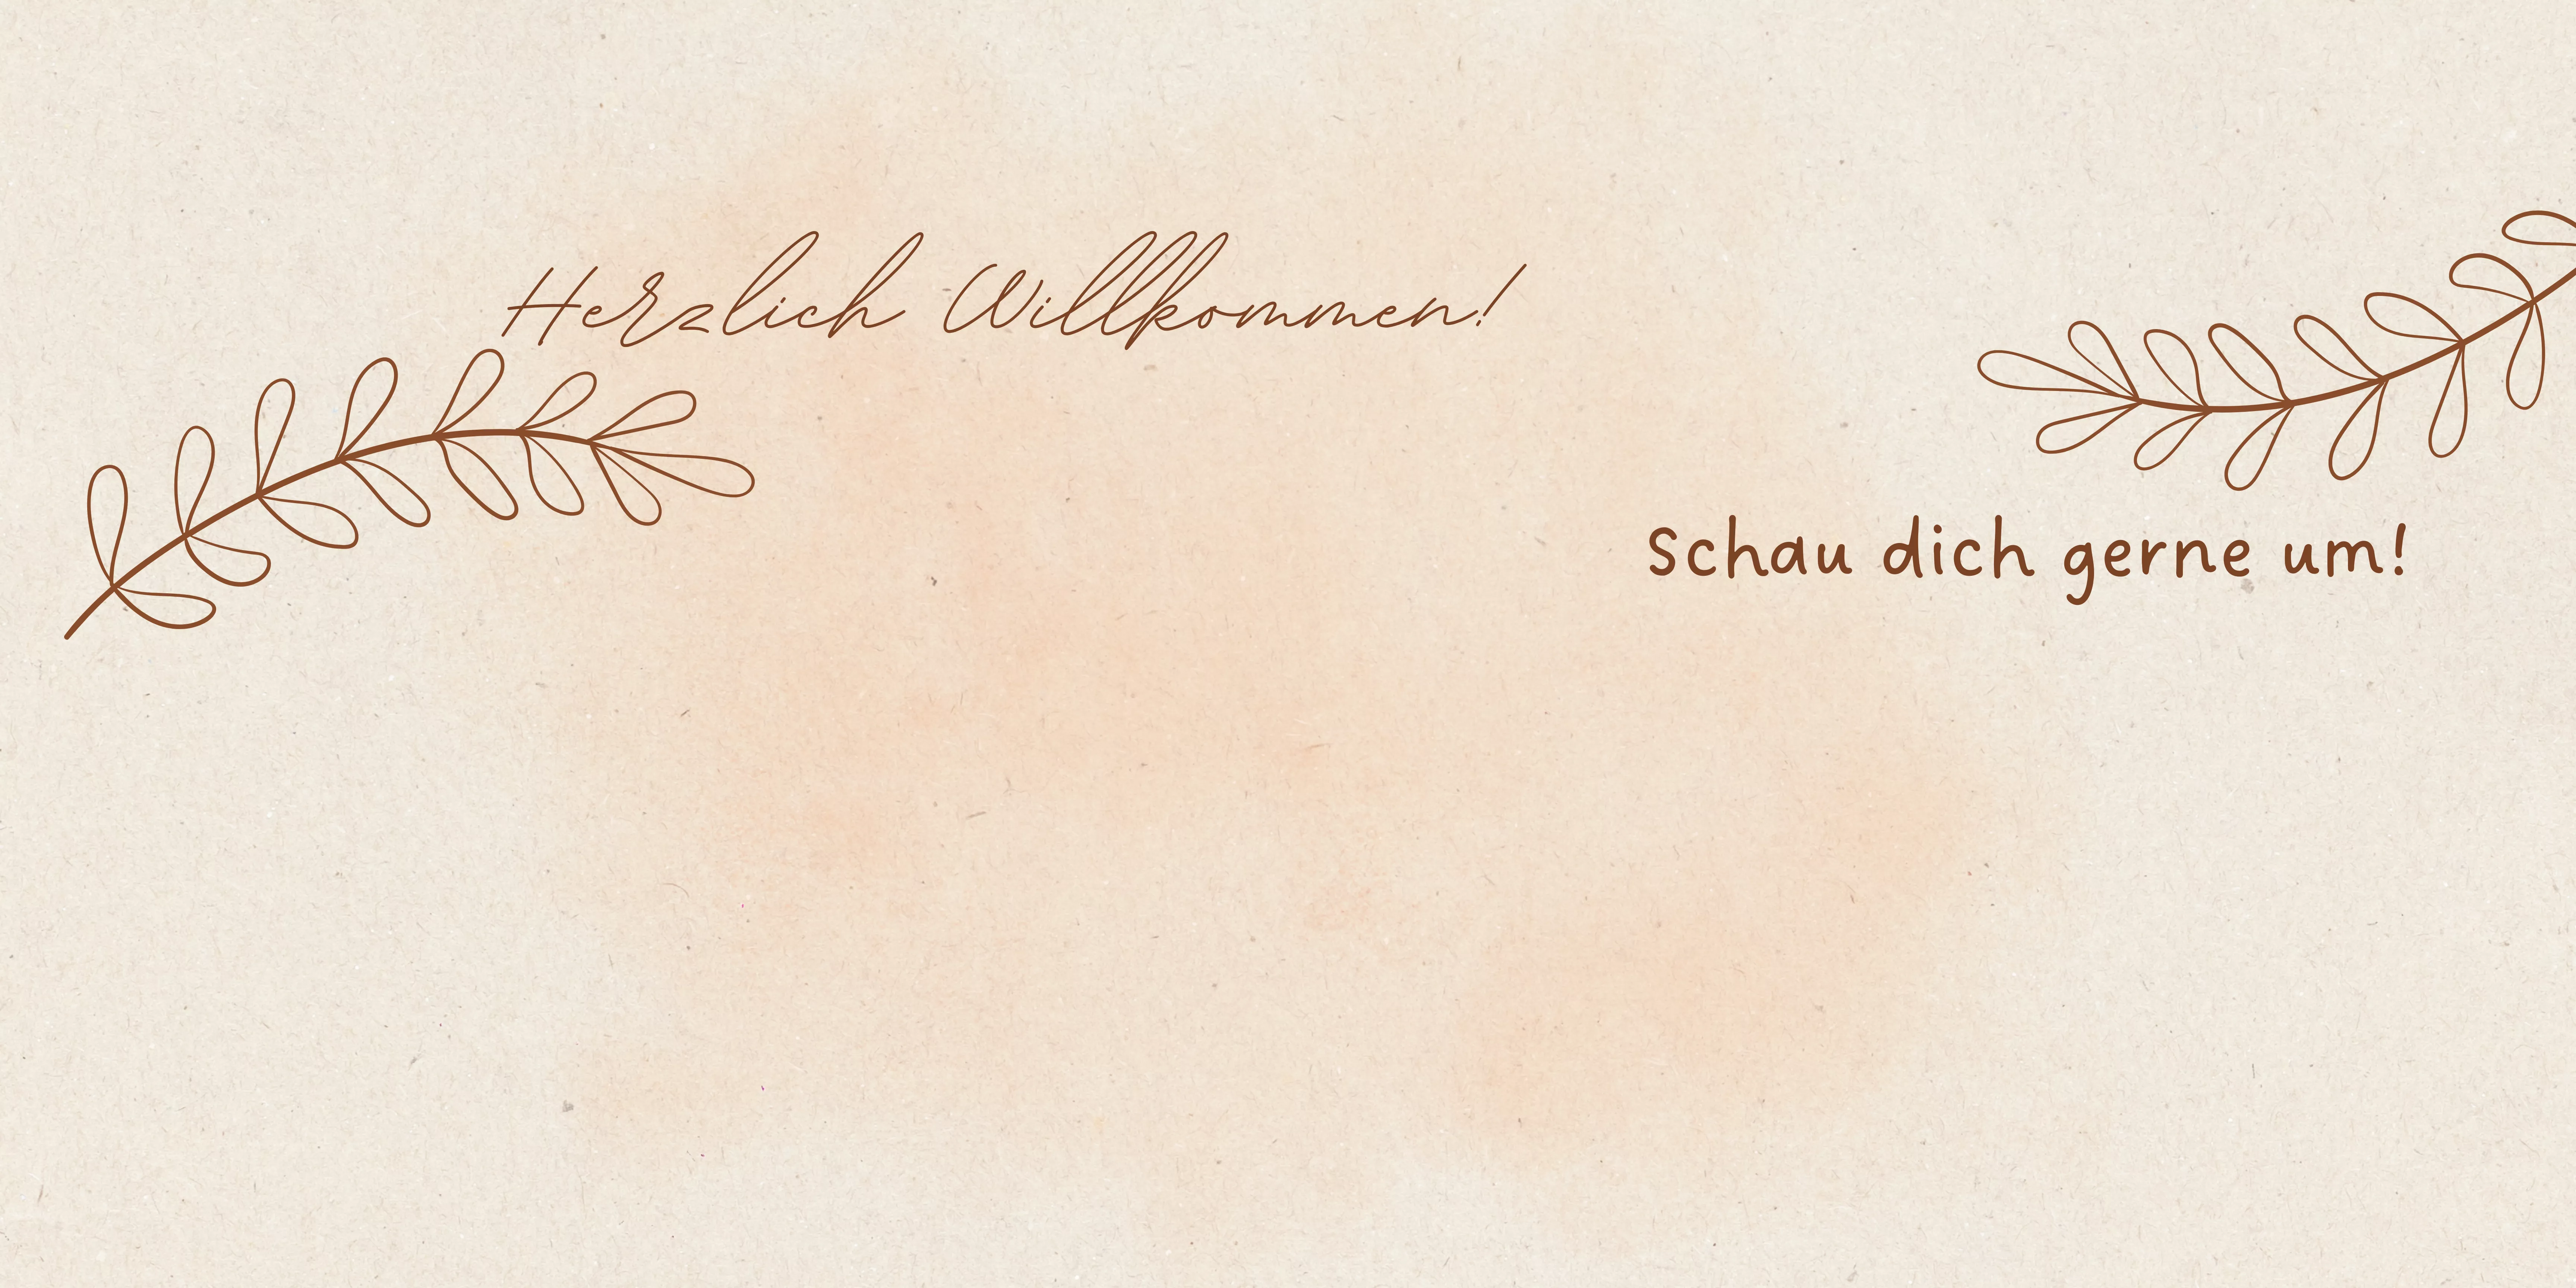 Herzlich Willkommen!
Schau dich gerne um!